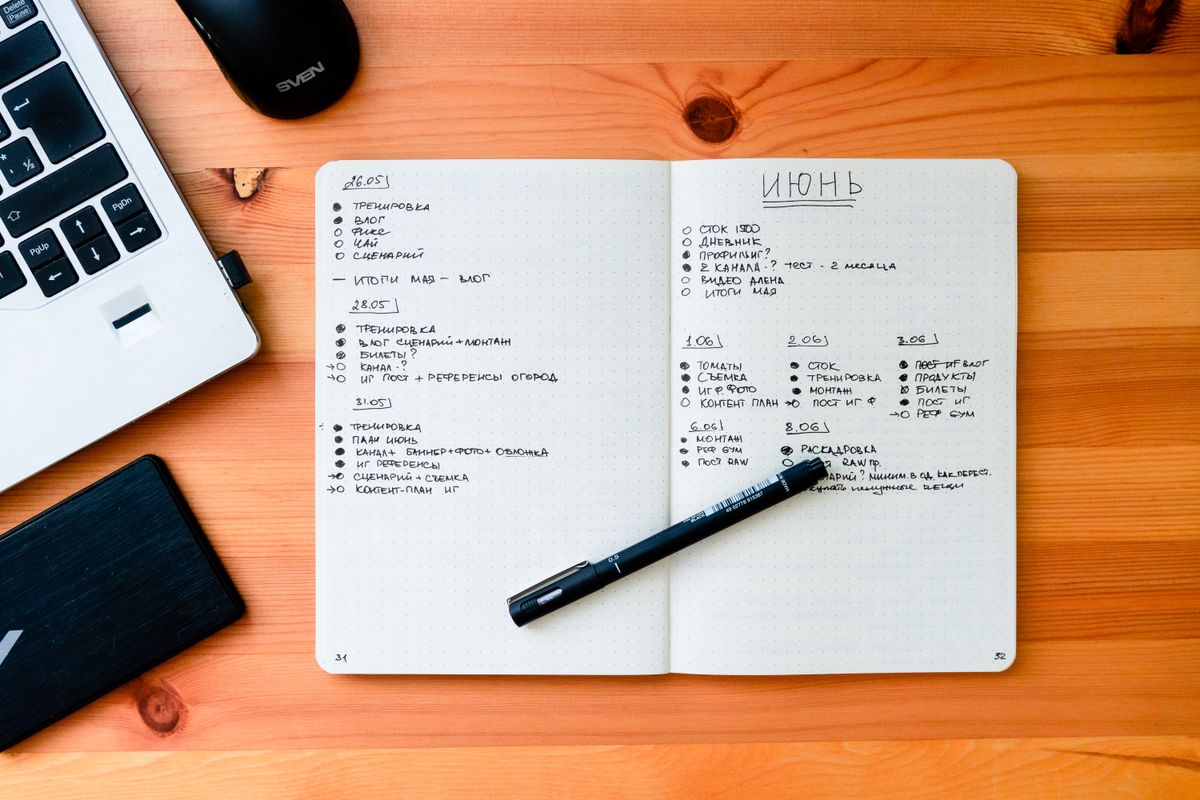 Delete
Pause
½
PgUp
PgDn
SVEN
26.05
ТРЕНИРОВКА
ВЛОГ
ФИКС
ЧАЙ
СЦЕНАРИЙ
— ИТОГИ МАЯ – ВЛОГ
28.05
ТРЕНИРОВКА
ВЛОГ СЦЕНАРИЙ+МОНТАЖ
БИЛЕТЫ?
КАНАЛ-?
ИГ ПОСТ + РЕФЕРЕНСЫ ОГОРОД
31.05
ТРЕНИРОВКА
ПЛАН ИЮНЬ
КАНАЛ+ БАННЕР+ФОТО+ОБЛОЖКА
ИГ РЕФЕРЕНСЫ
СЦЕНАРИЙ+СЪЕМКА
КОНТЕНТ-ПЛАН ИГ
31
ИЮНЬ
СТОК 1500
ДНЕВНИК
ПРОФИЛИГ?
2 КАНАЛА-? тест - 2 месяца
ВИДЕО АЛЕНА
ИТОГИ МАЯ
1.06 2.06 3.06
ТОМАТЫ СТОК ПОСТ ИГ ВЛОГ
СЪЕМКА ТРЕНИРОВКА ПРОДУКТЫ
ИГ Ф. ФОТО МОНТАЖ БИЛЕТЫ
КОНТЕНТ ПЛАН ПОСТ ИГ Ф ПОСТ ИГ
РЕФ GYM
6.06 8.06
МОНТАЖ РАСКАДРОВКА
РЕФ GYM RAW пр.
ПОСТ RAW МИНИМ. В ОД. КАК ПЕРЕСТ.
ненужные вещи
0.5
32